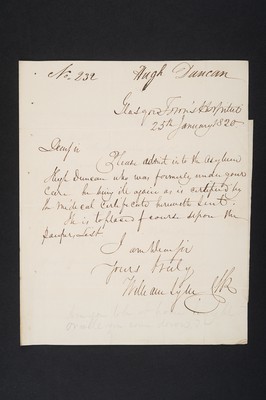 No. 232 Hugh Duncan
Glasgow Town's Hospital
25th January 1820
Dear Sir
Please admit into the Asylum
Hugh Duncan who was formerly under your
Care he being ill again as is certified by
the medical Certificate herewith sent.
He is to placed of course upon the
Pauper List
I am Dear Sir
Yours truly
William Lyle